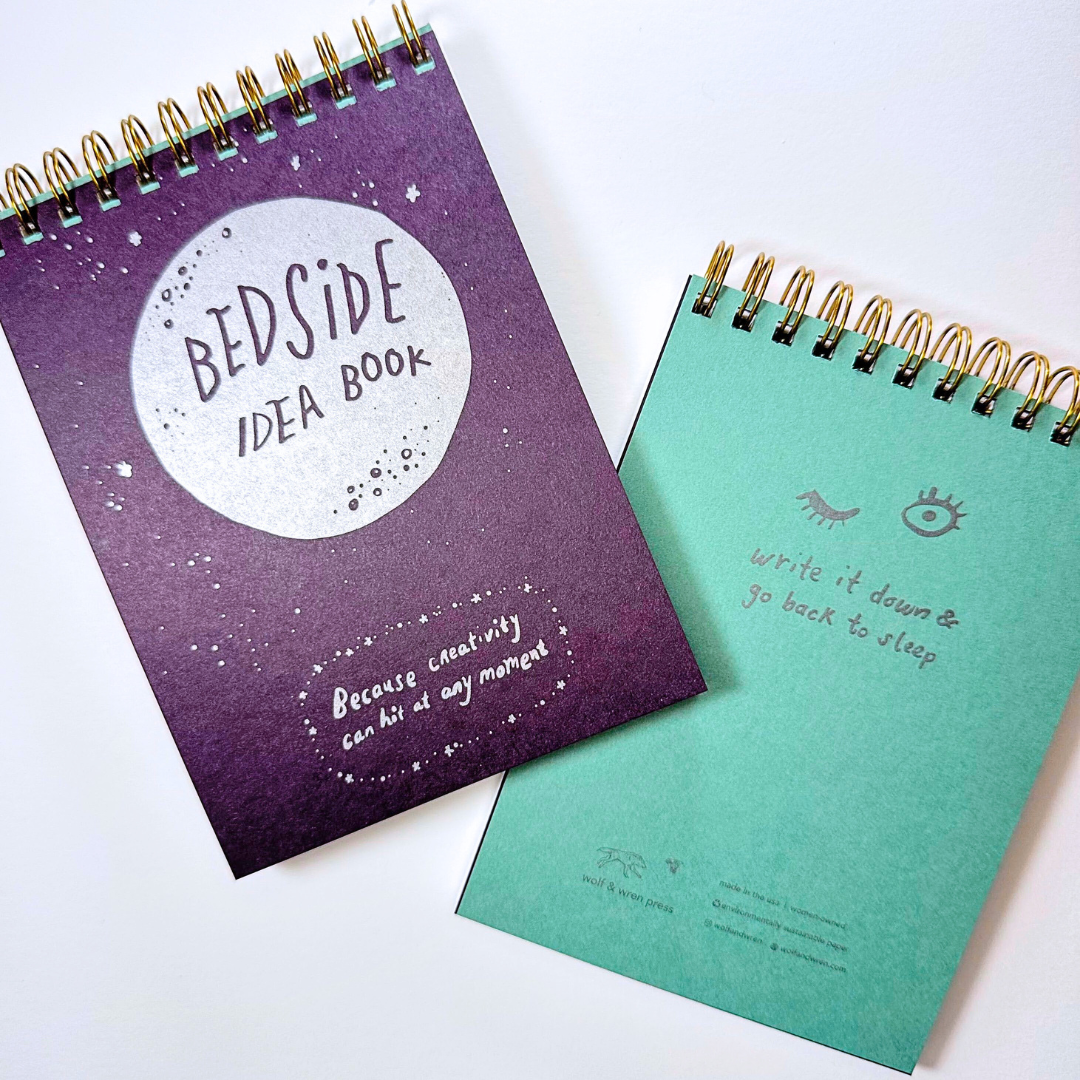 BEDSiDE
IDEA BOOK
Because creativity
can hit at any moment
write it down &
go back to sleep
wolf & wren press
made in the usa | women-owned
environmentally sustainable paper
wolfandwren wolfandwren.com